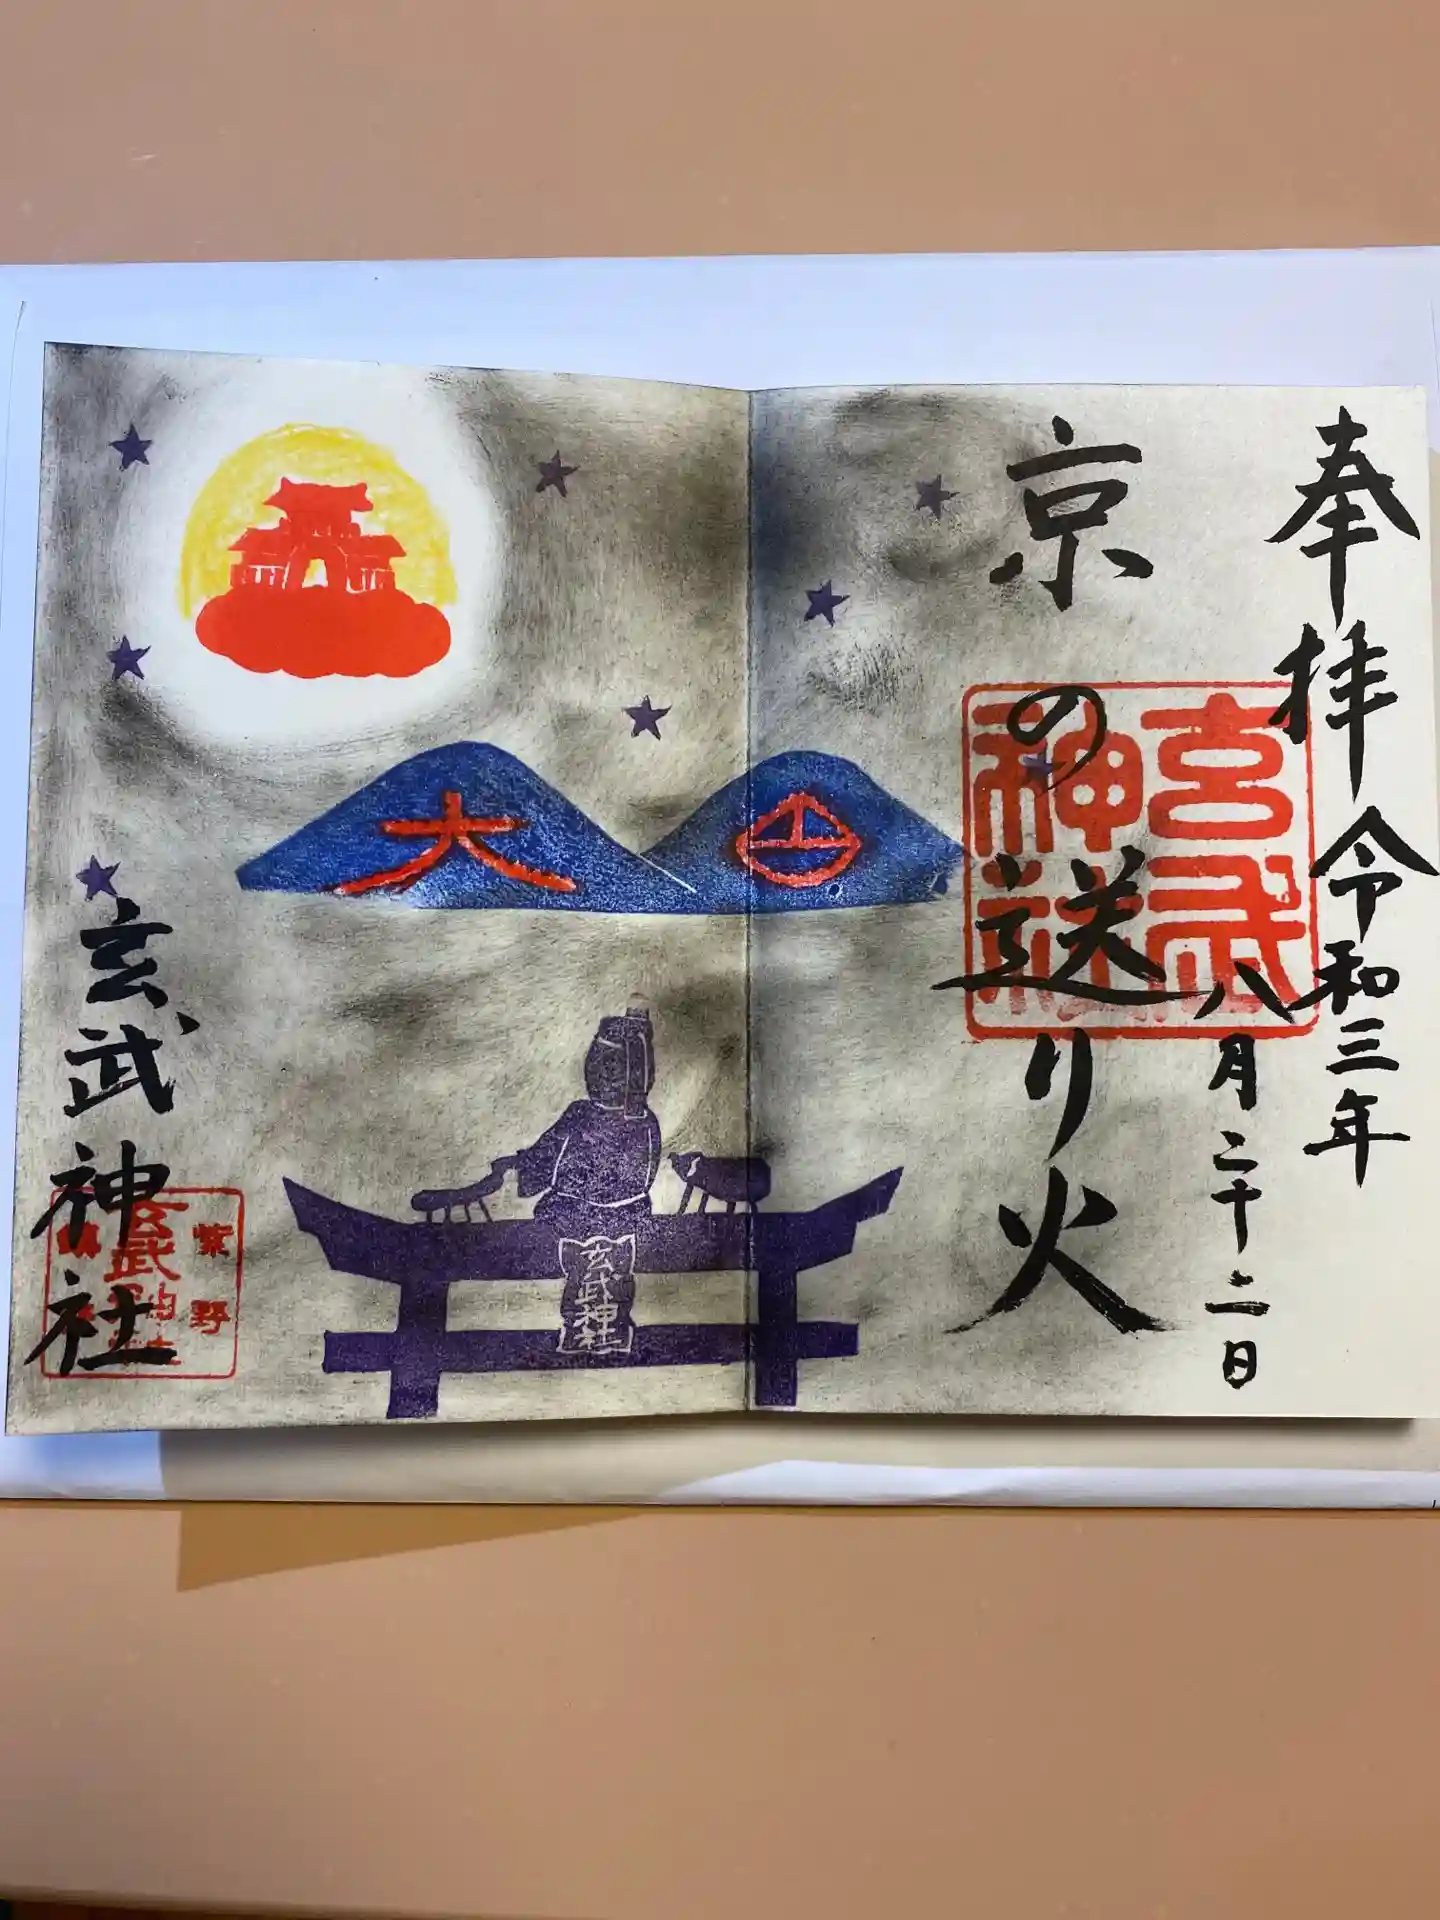 奉拝
令和三年
八月二十二日
京の送り火
玄武
神社
大
玄武神社
玄武神社
紫野
玄武神社